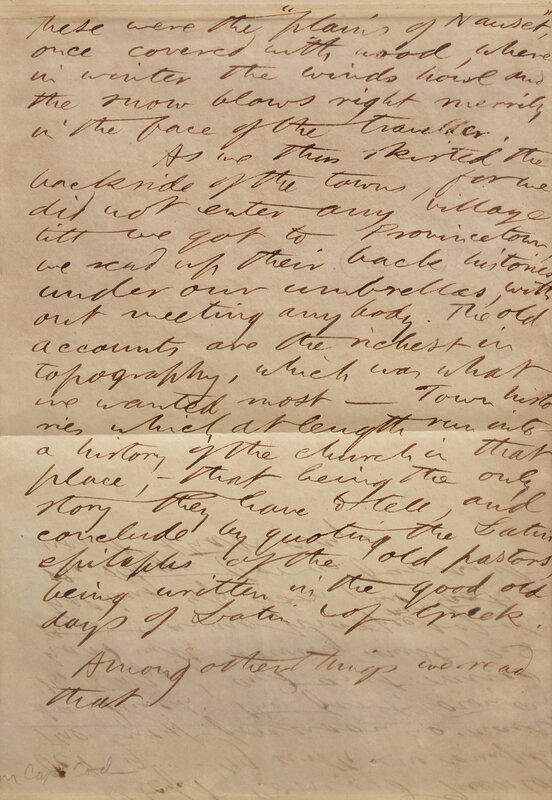 these were the "plains of Nauset,"
once covered with wood, where
in winter the winds howl and
the snow blows right merrily
in the face of the traveller.
As we thus skirted the
backside of the towns, for we
did not enter any village
till we got to Provincetown,
we read up their back histories
under our umbrellas, with
out meeting anybody. The old
accounts are the richest in
topography, which was what
we wanted most — Town histo
ries which at length run into
a history of the church in that
place, — that being the only
story they have to tell, and
conclude by quoting the Latin
epitaphs of the old pastors
being written in the good old
days of Latin & of Greek.
Among other things we read
that
Cape Cod